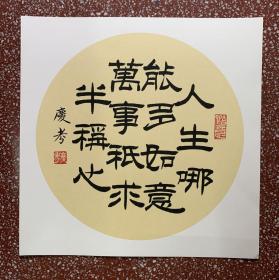 人生哪
能多如意
萬事祇求
半稱心
慶考